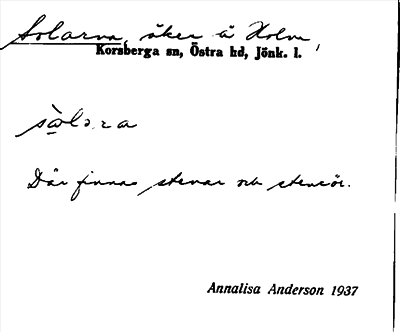 Solarna, åker å Holm,
Korsberga sn, Östra hd, Jönk. l.
Där finnas stenar och stenrör.
Annalisa Anderson 1937